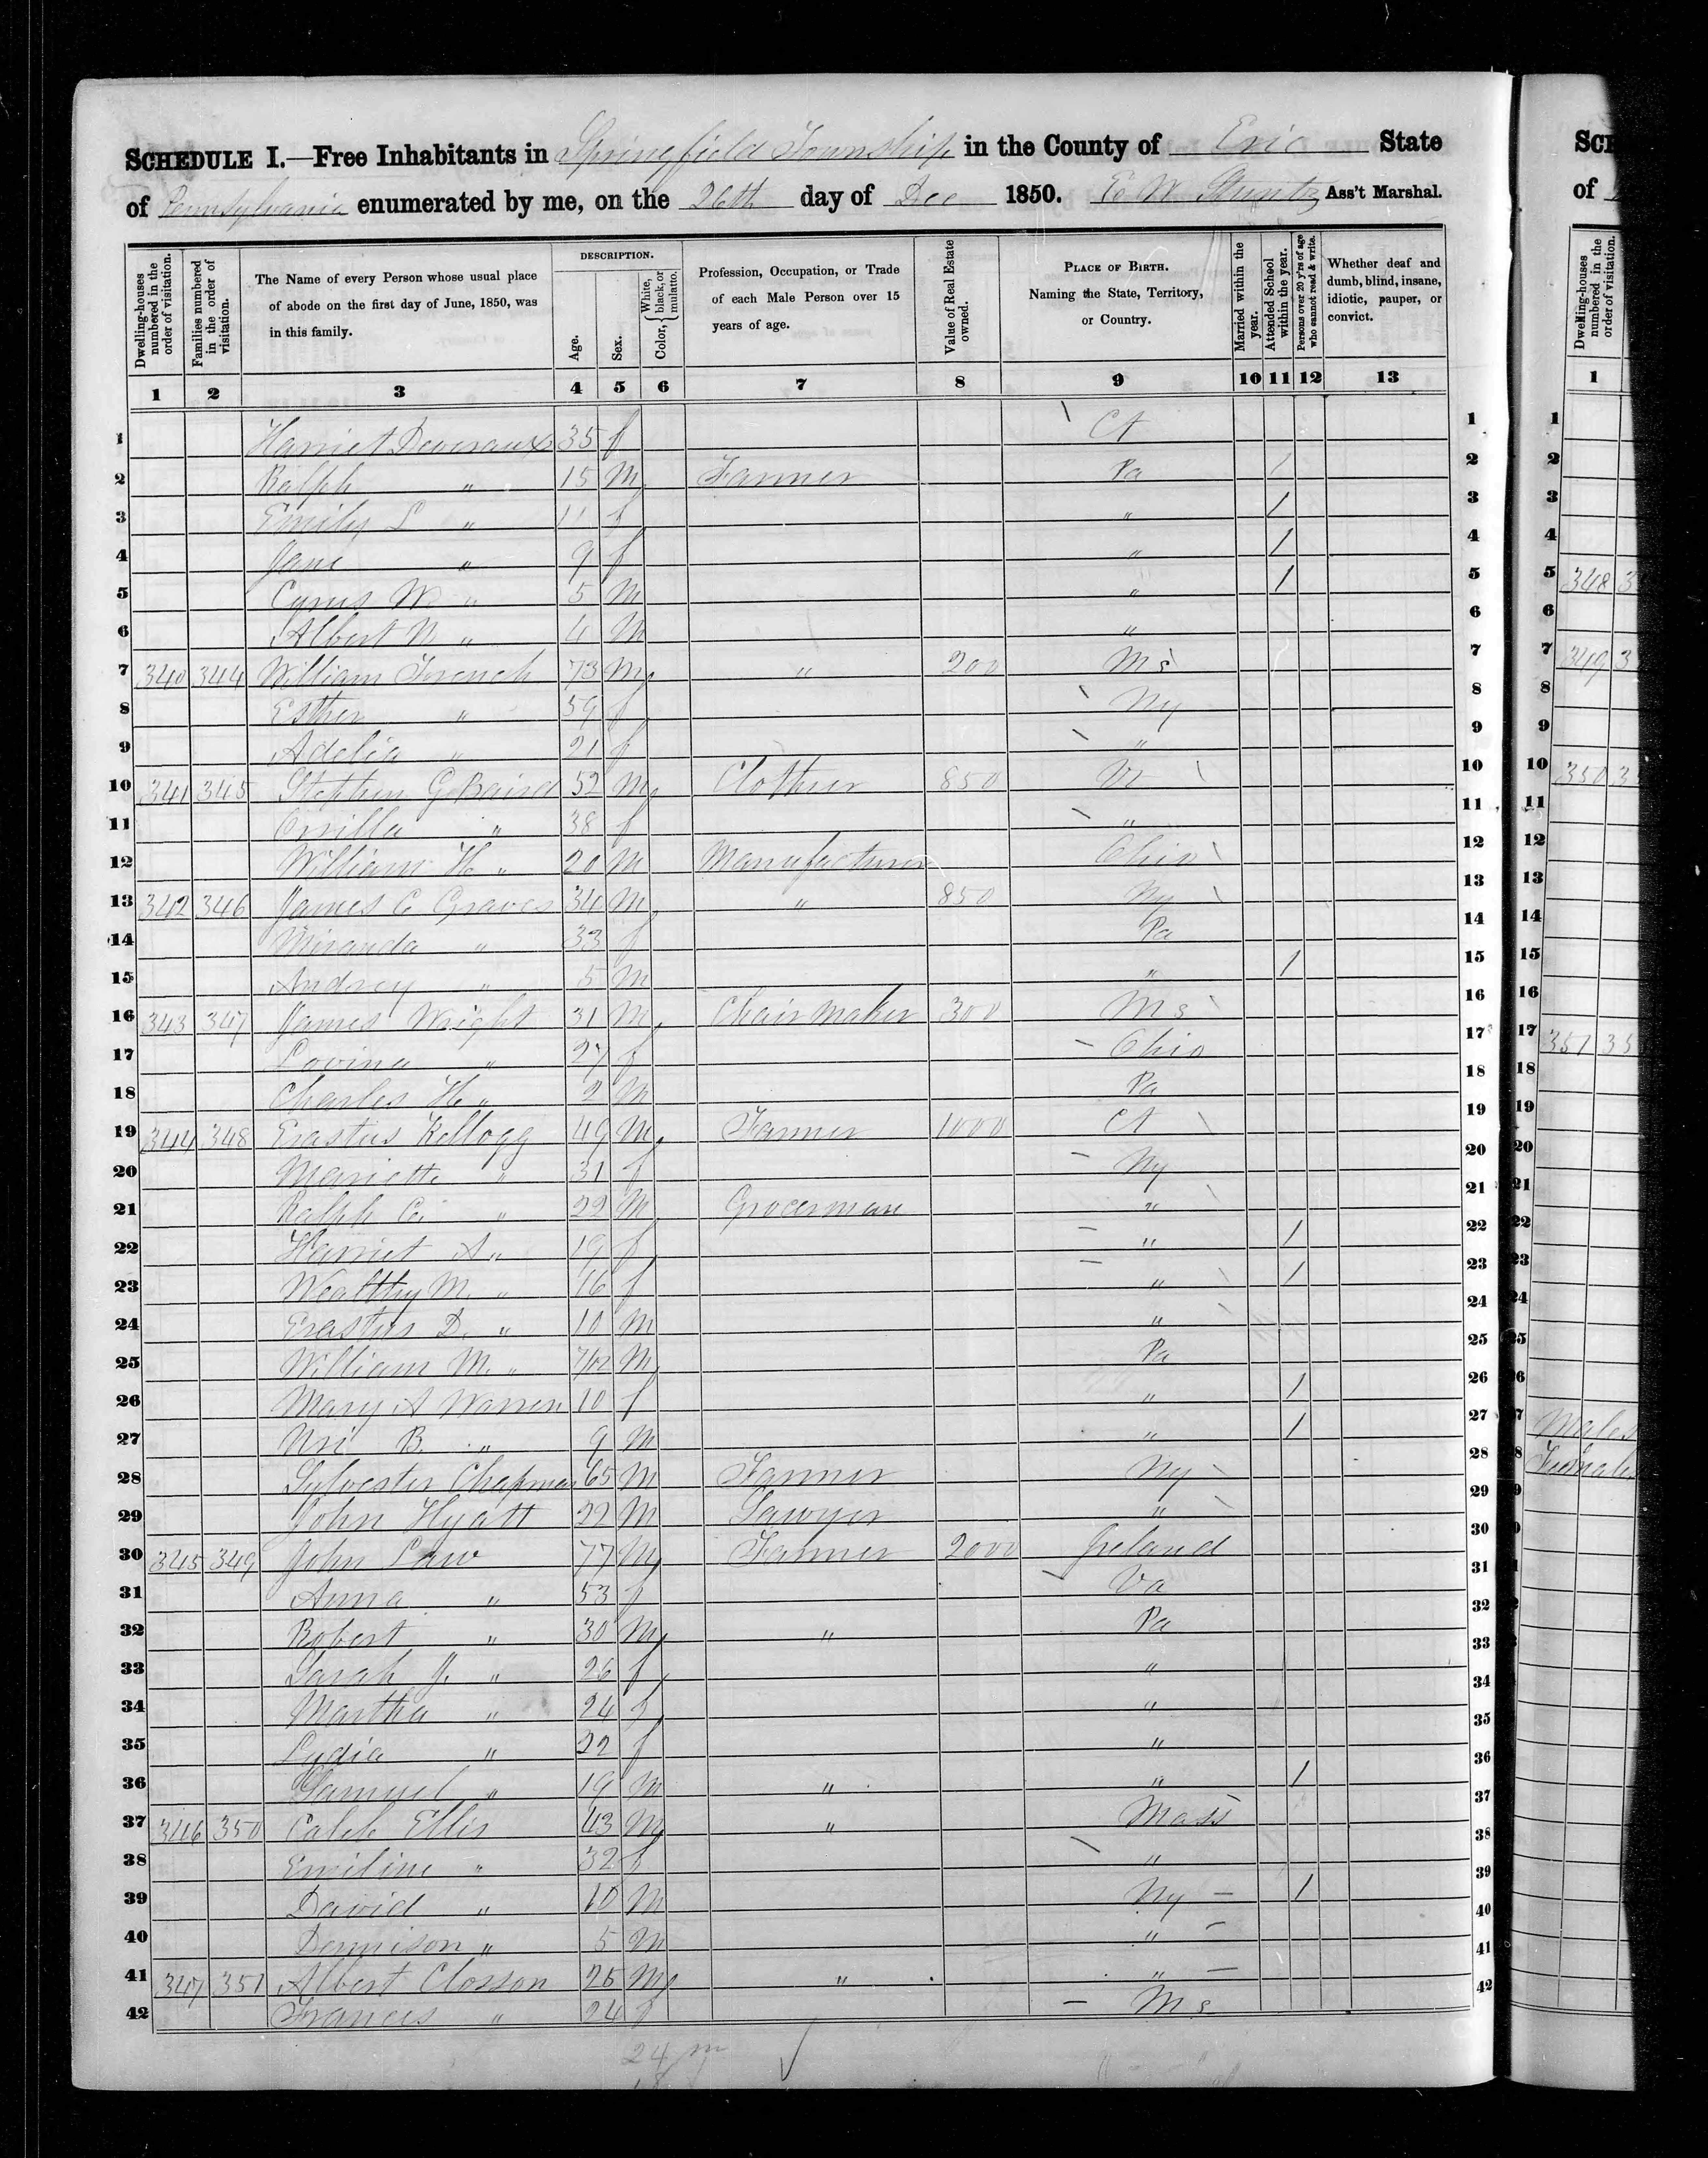 SCHEDULE I.—Free Inhabitants in Springfield Township in the County of Erie State
of Pennsylvania enumerated by me, on the 26th day of Dec 1850. E W Stuntz Ass't Marshal.
Dwelling-houses numbered in the order of visitation.
Families numbered in the order of visitation.
The Name of every Person whose usual place of abode on the first day of June, 1850, was in this family.
DESCRIPTION.
Age.
Sex.
Color, { White, black, or mulatto.
Profession, Occupation, or Trade of each Male Person over 15 years of age.
Value of Real Estate owned.
PLACE OF BIRTH. Naming the State, Territory, or Country.
Married within the year.
Attended School within the year.
Persons over 20 y'rs of age who cannot read & write.
Whether deaf and dumb, blind, insane, idiotic, pauper, or convict.
1 2 3 4 5 6 7 8 9 10 11 12 13
1 Harriet Deveraux 35 f Ct 1
2 Ralph " 15 M Farmer Pa / 2
3 Emily L " 11 f " / 3
4 Jane " 9 f " / 4
5 Cyrus W " 5 M " / 5
6 Albert N " 4 M " 6
7 340 344 William French 73 M " 200 Ms 7
8 Esther " 59 f Ny 8
9 Adelia " 21 f " 9
10 341 345 Stephen G Baird 52 M Clothier 850 Vt 10
11 " 38 f " 11
12 William H " 20 M Manufacturer Ohio 12
13 342 346 James C Graves 34 M " 850 Ny 13
14 Miranda " 33 f Pa 14
15 Andrey " 5 M " / 15
16 343 347 James Wright 31 M Chair Maker 300 Ms 16
17 Lovina " 27 f Ohio 17
18 Charles H " 2 M Pa 18
19 344 348 Erastus Kellogg 49 M Farmer 1000 Ct 19
20 Mariette " 31 f Ny 20
21 Ralph C. " 22 M Grocerman " 21
22 Harriet A " 19 f " / 22
23 Wealthy M. " 16 f " / 23
24 Erastus D. " 10 M " 24
25 William M. " 7/12 M Pa 25
26 Mary A Warren 10 f " / 26
27 Uri B. " 9 M " / 27
28 Sylvester Chapman 65 M Farmer Ny 28
29 John Hyatt 22 M Sawyer " 29
30 345 349 John Law 77 M Farmer 2000 Ireland 30
31 Anna " 53 f Va 31
32 Robert " 30 M " Pa 32
33 Sarah J. " 26 f " 33
34 Martha " 24 f " 34
35 Lydia " 22 f " 35
36 Samuel " 19 M " " / 36
37 346 350 Caleb Ellis 43 M " Mass 37
38 Emiline " 32 f " 38
39 David " 10 M Ny / 39
40 Dennison " 5 M " 40
41 347 351 Albert Closson 25 M " " 41
42 Francis " 24 f Ms 42
24 m
18
SCH
of
Dwelling-houses numbered in the order of visitation.
1
1
2
3
4
5 348 3
6
7 349 3
8
9
10 350 3
11
12
13
14
15
16
17 351 35
18
19
20
21
22
23
24
25
26
27 Males
28 Females